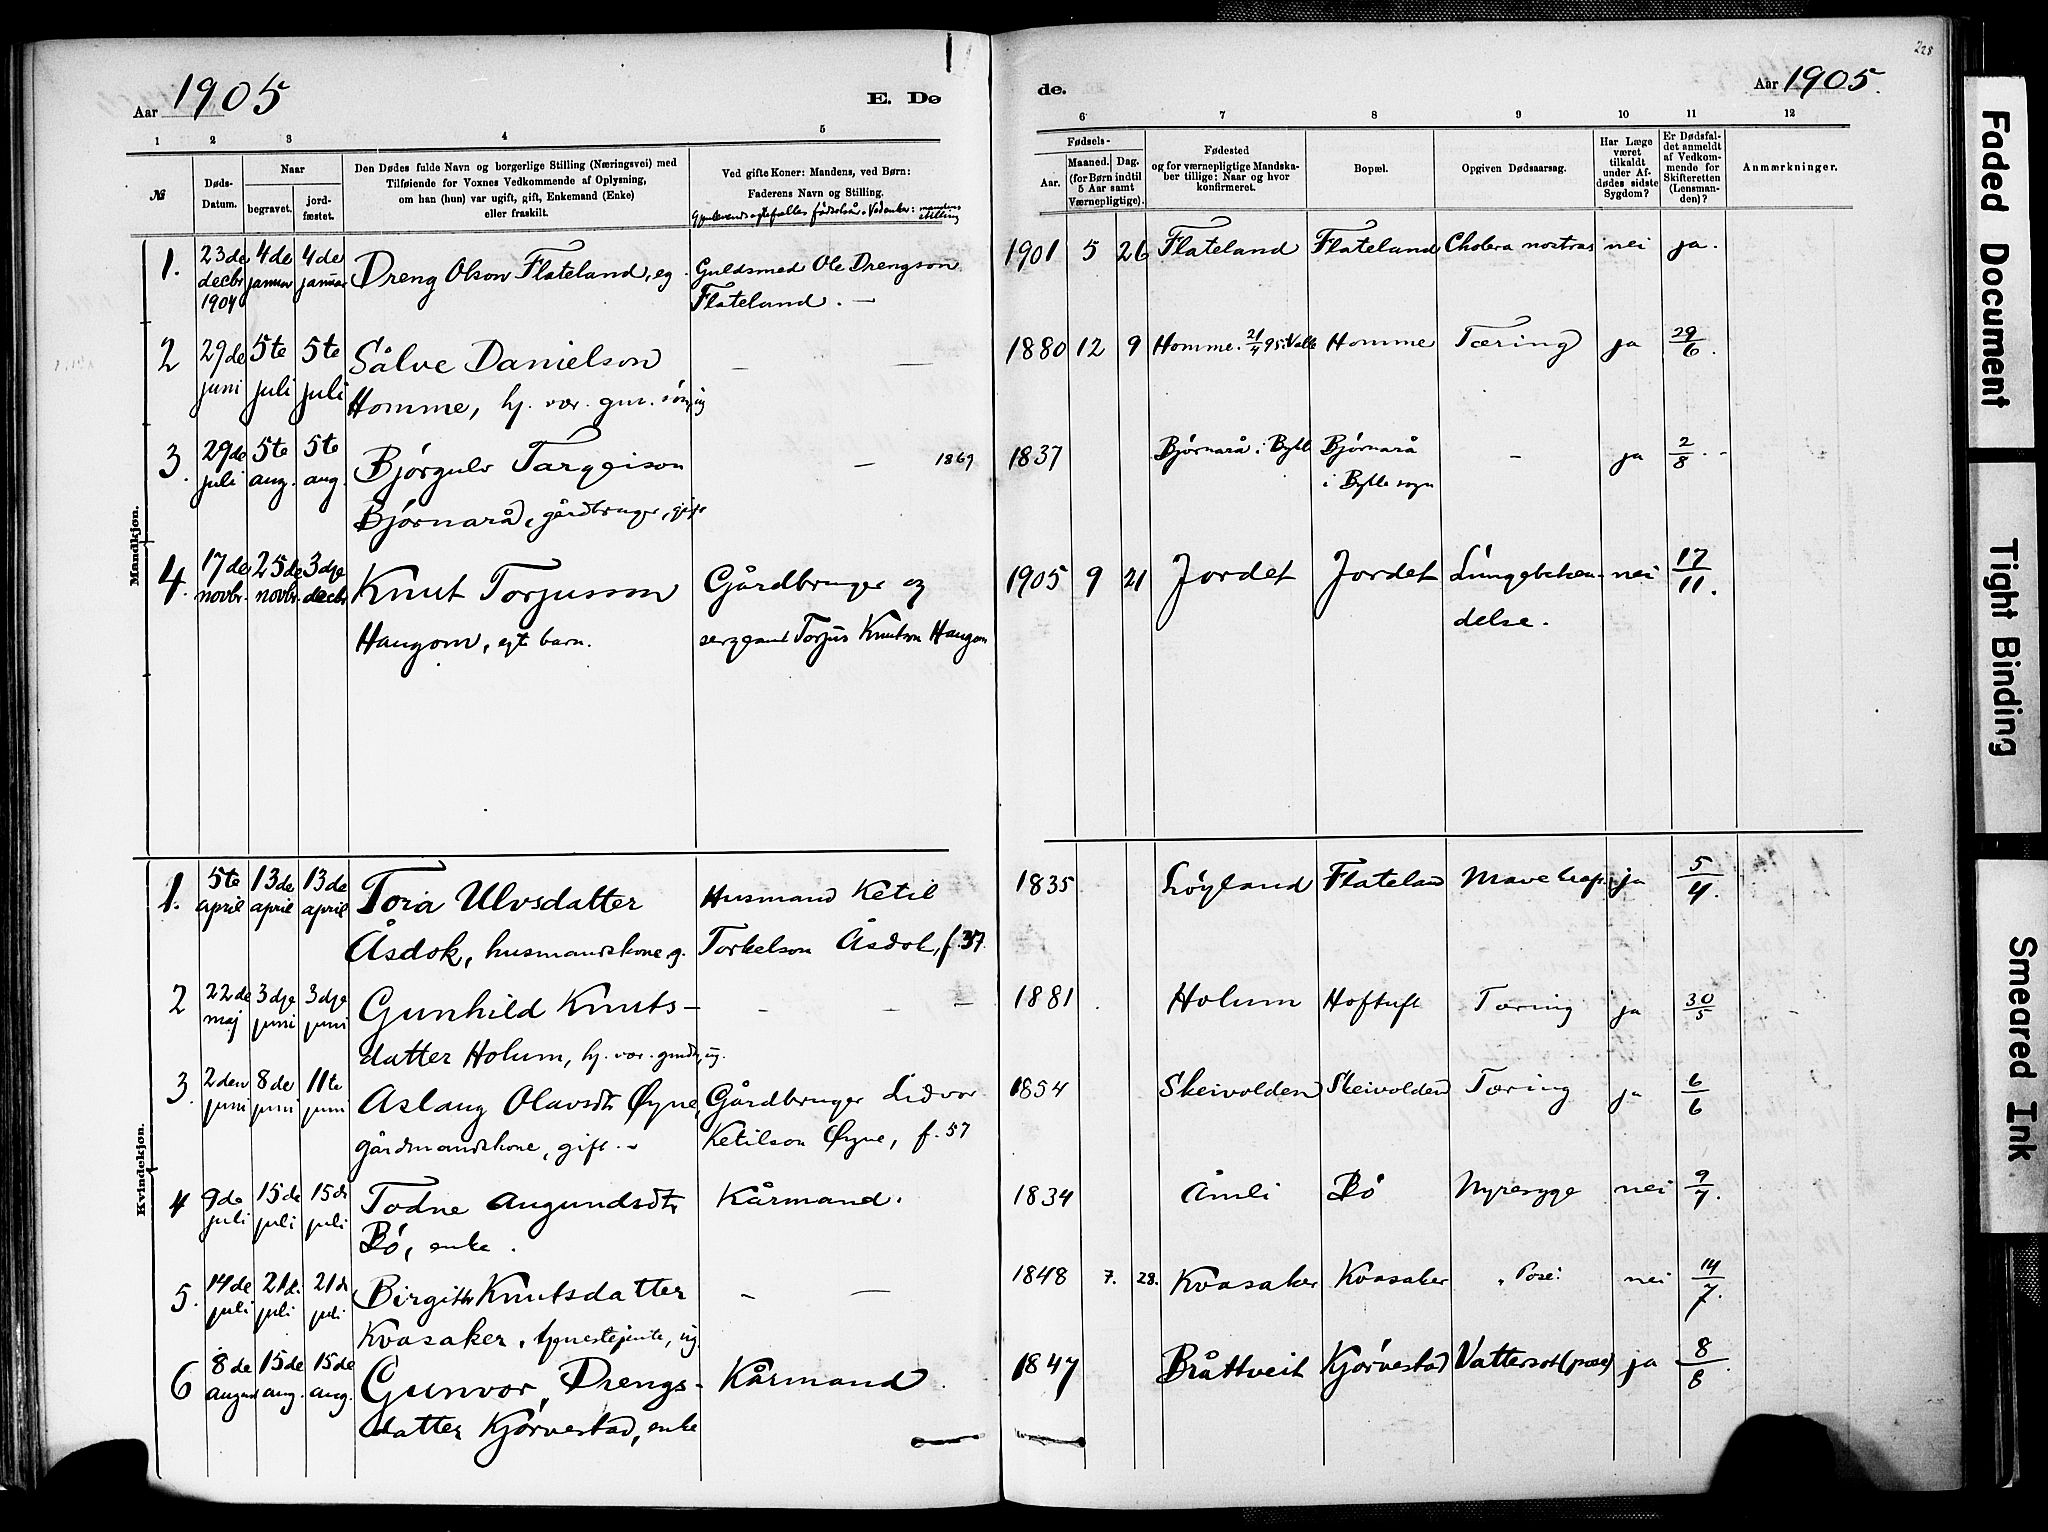 228
Aar 1905
E. Dø
de.
Aar 1905.
1 2 3 4 5
6 7 8 9 10 11 12
№
Døds-
Datum.
Naar
begravet.
jord-
fæstet.
Den Dødes fulde Navn og borgerlige Stilling (Næringsvei) med
Tilføiende for Voxnes Vedkommende af Oplysning,
om han (hun) var ugift, gift, Enkemand (Enke)
eller fraskilt.
Ved gifte Koner: Mandens, ved Børn:
Faderens Navn og Stilling.
Gjenlevende ægtefælles fødselsår. Ved enker: mandens
stilling
Fødsels-
Aar.
Maaned. Dag.
(for Børn indtil
5 Aar samt
Værnepligtige).
Fødested
og for værnepligtige Mandska-
ber tillige: Naar og hvor
konfirmeret.
Bopæl.
Opgiven Dødsaarsag.
Har Læge
været
tilkaldt
under Af-
dødes sidste
Sygdom?
Er Dødsfal-
det anmeldt
af Vedkom-
mende for
Skifteretten
(Lensman-
den)?
Anmærkninger.
Mandkjøn.
1. 23de decbr 1904 4de januar 4de januar Dreng Olson Flateland, eg. Guldsmed Ole Drengson
Flateland. —
1901 5 26 Flateland Flateland Cholera nostras nei ja.
2 29de juni 5te juli 5te juli Sålve Danielson — —
Homme, hj. vær. gm. søn, ug
1880 12 9 Homme. 21/4 95 i Valle Homme Tæring ja 29/6.
3. 29de juli 5te aug. 5te aug. Bjørgulv Targeison — 1869
Bjørnarå, gårdbruger, gift
1837 Bjørnarå i Bykle Bjørnarå
i Bykle sogn - ja 2/8.
4. 17de novbr. 25de novbr. 3dje decbr Knut Torjusson Gårdbruger og
Haugom, egt. barn. sergeant Torjus Knutson Haugom
1905 9 21 Jordet Jordet Lungebeten-
delse. nei 17/11.
Kvindekjøn.
1. 5te april 13de april 13de april Tora Ulvsdatter Husmand Ketil
Åsdok, husmandskone, g. Torkelson Åsdok, f. 37.
1835 Løyland Flateland Mave ja 5/4.
2 22de maj 3dje juni 3dje juni Gunhild Knuts- - - -
datter Holum, hj. vær. gmdtr, ug.
1881 Holum Hoftuft Tæring ja 30/5
3. 2den juni 8de juni 11te juni Aslaug Olavsdtr Øyne, Gårdbruger Lidvor
gårdmandskone, gift. - Ketilson Øyne, f. 57
1854 Skeivolden Skeivolden Tæring ja 6/6
4 9de juli 15de juli 15de juli Todne Augundsdtr Kårmand.
Bø, enke.
1834 Åmli Bø Nyresyge nei 9/7.
5. 14de juli 21de juli 21de juli Birgitte Knutsdatter - —
Kvasaker, tjenestejente, ug
1848 7. 28. Kvasaker Kvasaker „Pose“ nei 14/7.
6 8de august 15de aug. 15de aug. Gunvor Drengs- Kårmand.
datter Kjørvestad, enke
1847 Bråttveit Kjørvestad Vattersot (pose) ja 8/8.
Faded Document
Tight Binding
Smeared Ink